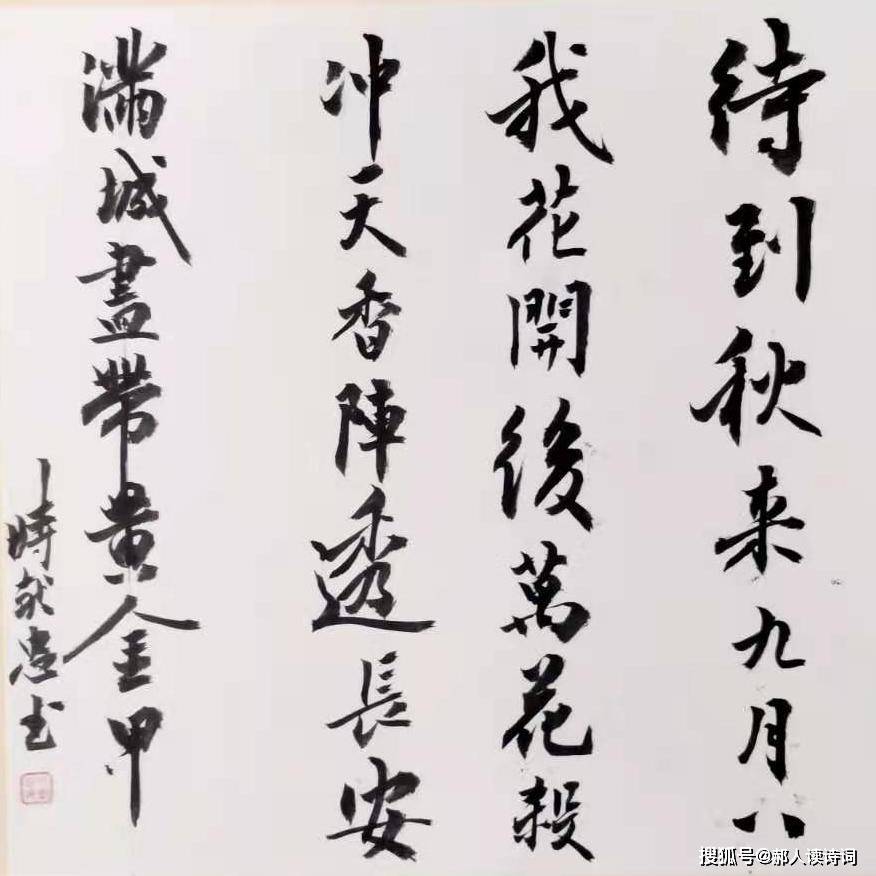 待到秋来九月八
我花開後萬花殺
冲天香陣透長安
滿城盡帶黄金甲
時书
搜狐号@郝人读诗词